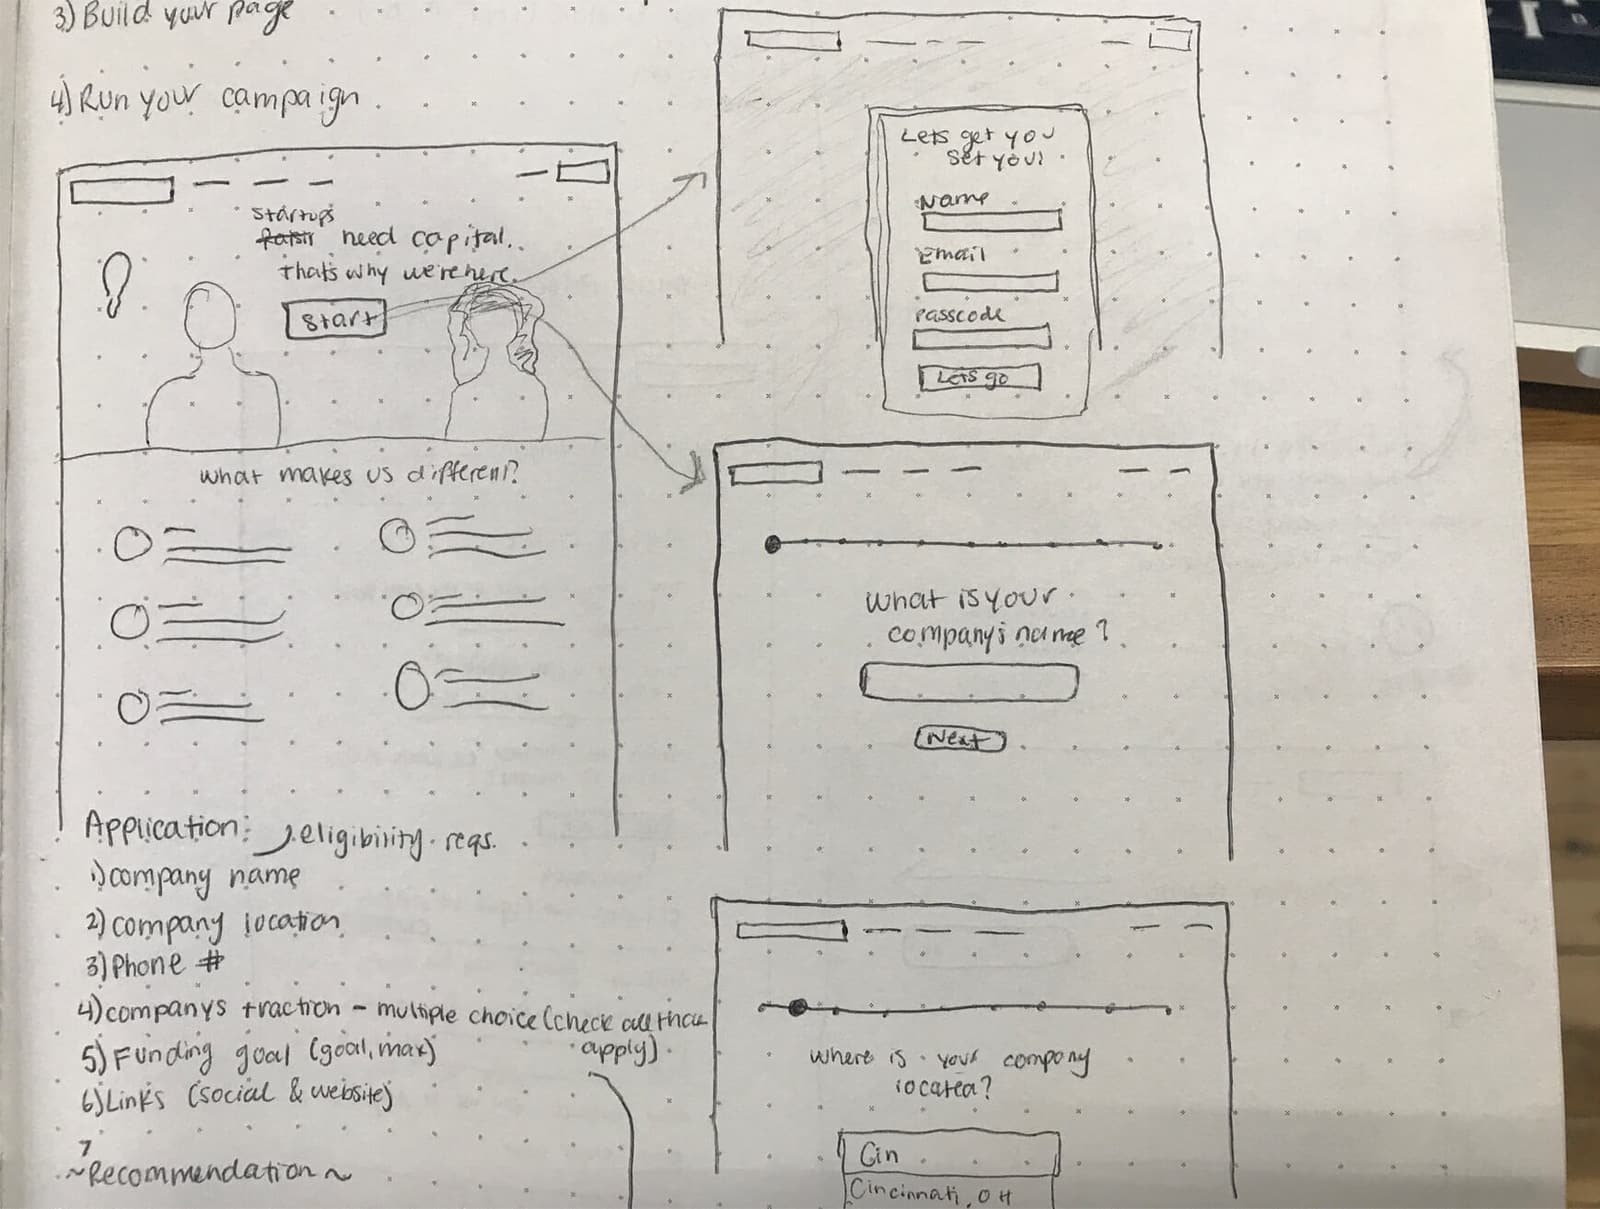 3) Build your page
4) Run your campaign
startups
need capital.
thats why we're here.
Start
what makes us different?
Application: eligibility reqs.
1) company name
2) company location
3) Phone #
4) companys traction - multiple choice (check all that
apply)
5) Funding goal (goal, max)
6) Links (social & website)
7
~Recommendation~
Lets get you
set you!
Name
Email
Passcode
Lets go
What is your
company's name?
Next
Where is your company
located?
Cin
Cincinnati, OH